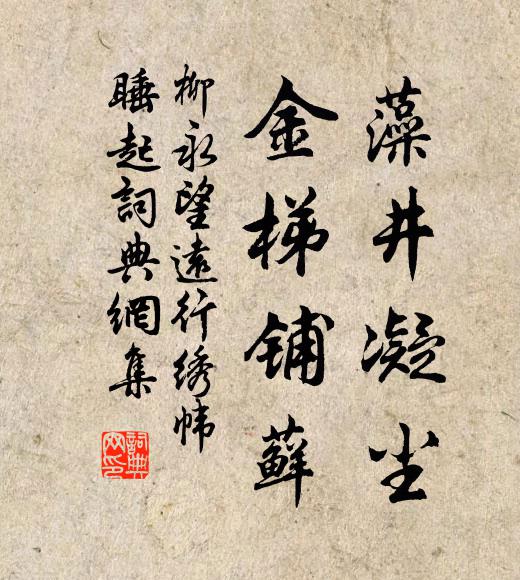 藻井凝尘
金梯铺藓
柳永望遠行绣帏
睡起詞典網集
詞典网印